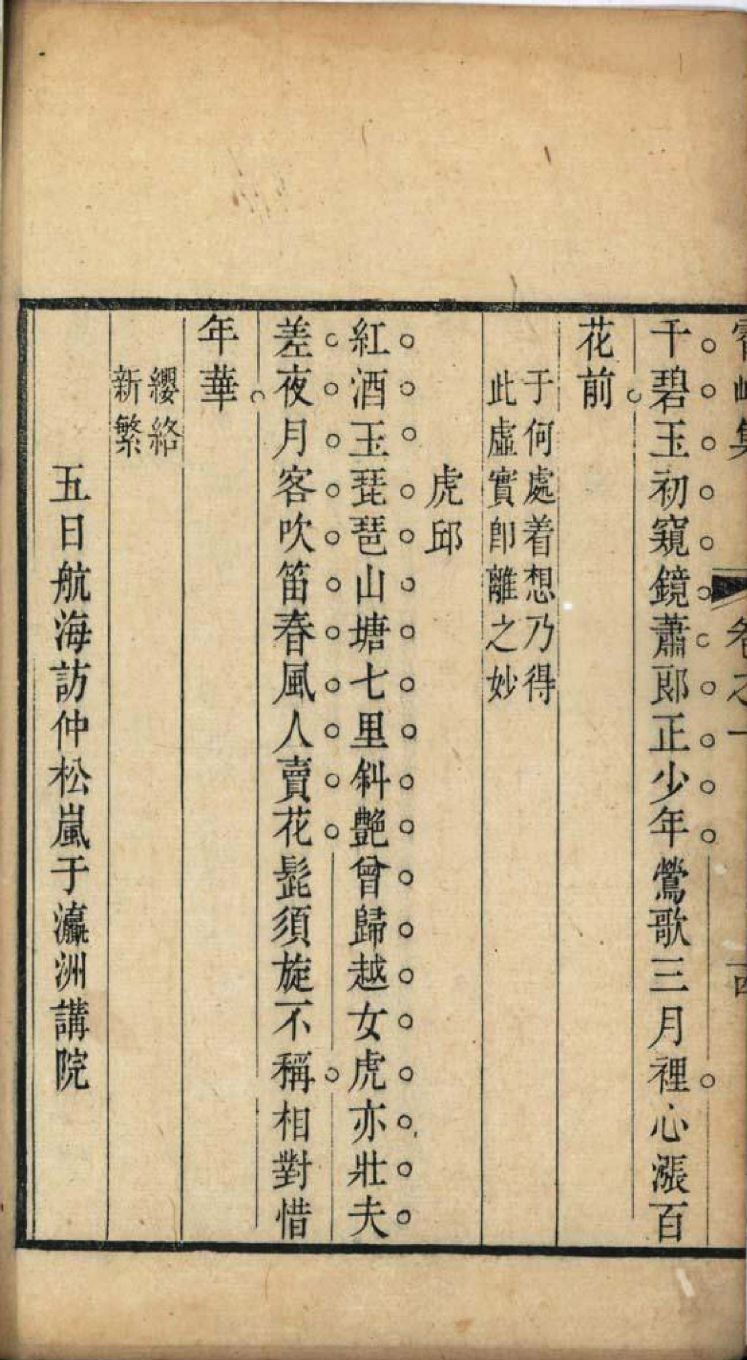 集 卷之一
干碧玉初窺鏡蕭郎正少年鶯歌三月裡心漲百
花前
于何處着想乃得
此虛實卽離之妙
虎邱
紅酒玉琵琶山塘七里斜艶曾歸越女虎亦壯夫
差夜月客吹笛春風人賣花髭須旋不稱相對惜
年華
纓絡
新繁
五日航海訪仲松嵐于瀛洲講院